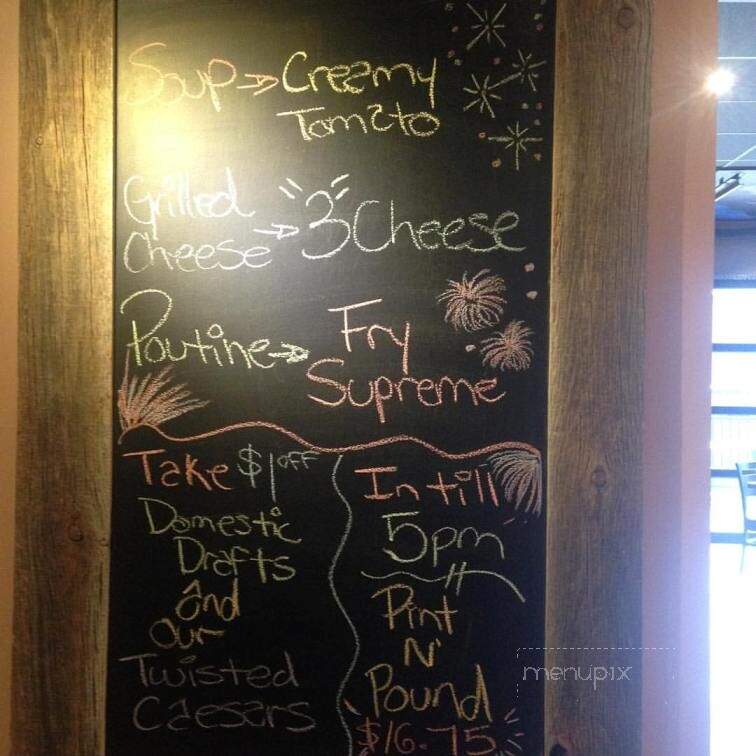 Soup → Creamy
Tomato
Grilled
Cheese → 3 Cheese
Poutine → Fry
Supreme
Take $1 off
Domestic
Drafts
and
our
Twisted
Caesars
In till
5pm
Pint
N'
Pound
$16.75
menupix